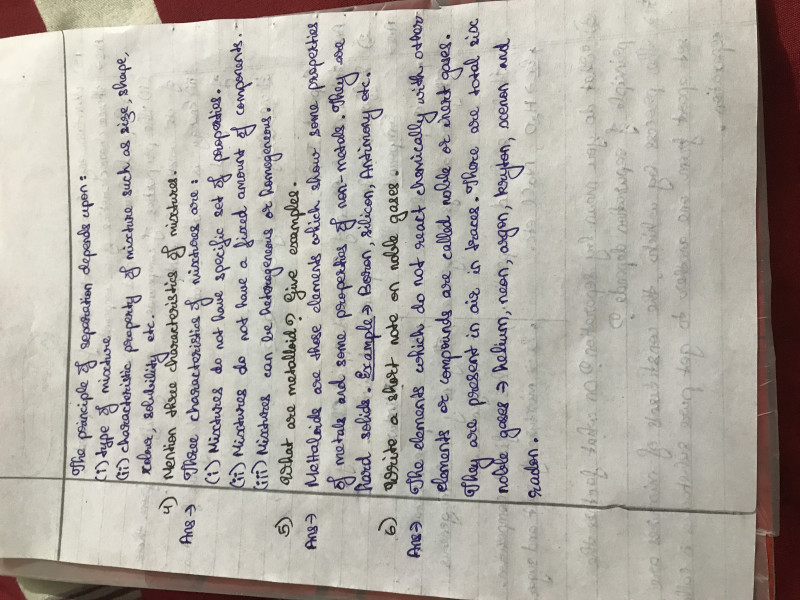 The principle of separation depends upon:
(i) type of mixture
(ii) characteristic property of mixture such as size, shape,
colour, solubility etc.
4) Mention three characteristics of mixtures.
Ans→ Three characteristics of mixtures are:
(i) Mixtures do not have specific set of properties.
(ii) Mixtures do not have a fixed amount of components.
(iii) Mixtures can be heterogeneous or homogeneous.
5) What are metalloid? Give examples.
Ans→ Mettaloids are those elements which show some properties
of metals and some properties of non-metals. They are
hard solids. Example→ Boron, silicon, Antimony etc.
6) Write a short note on noble gases.
Ans→ The elements which do not react chemically with other
elements or compounds are called noble or inert gases.
They are present in air in traces. There are total six
noble gases → helium, neon, argon, kryton, xenon and
radon.